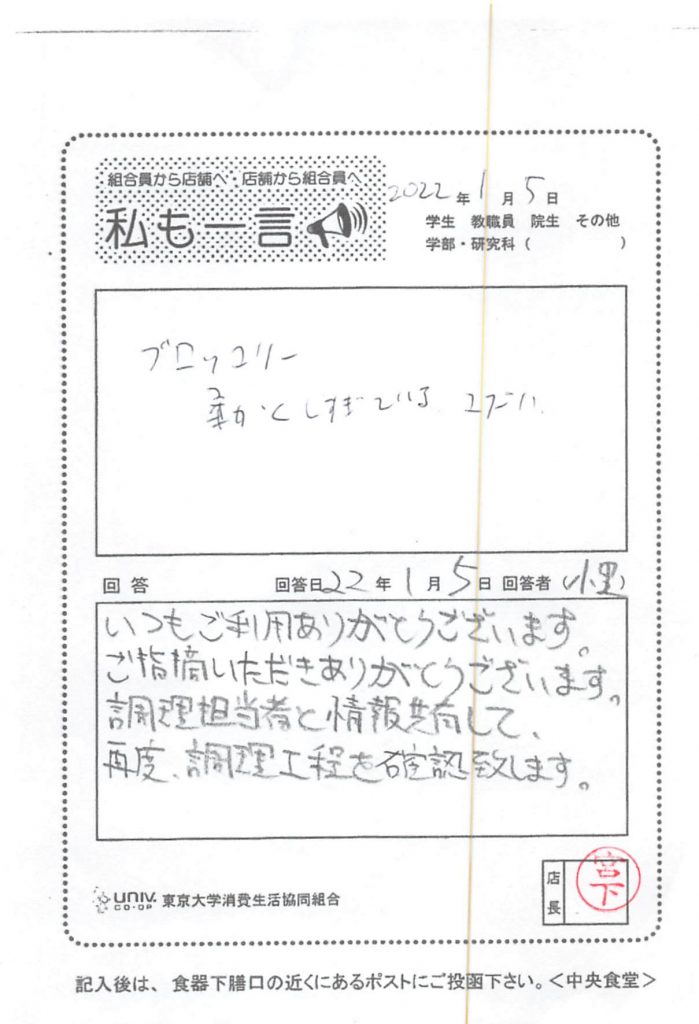 組合員から店舗へ・店舗から組合員へ
私も一言
2022年1月5日
学生 教職員 院生 その他
学部・研究科（ ）
ブロッコリー
柔かくしすぎている
回答 回答日22年1月5日 回答者（小里）
いつもご利用ありがとうございます。
ご指摘いただきありがとうございます。
調理担当者と情報共有して、
再度、調理工程を確認致します。
UNIV.
CO-OP
東京大学消費生活協同組合
店長
宮下
記入後は、食器下膳口の近くにあるポストにご投函下さい。＜中央食堂＞